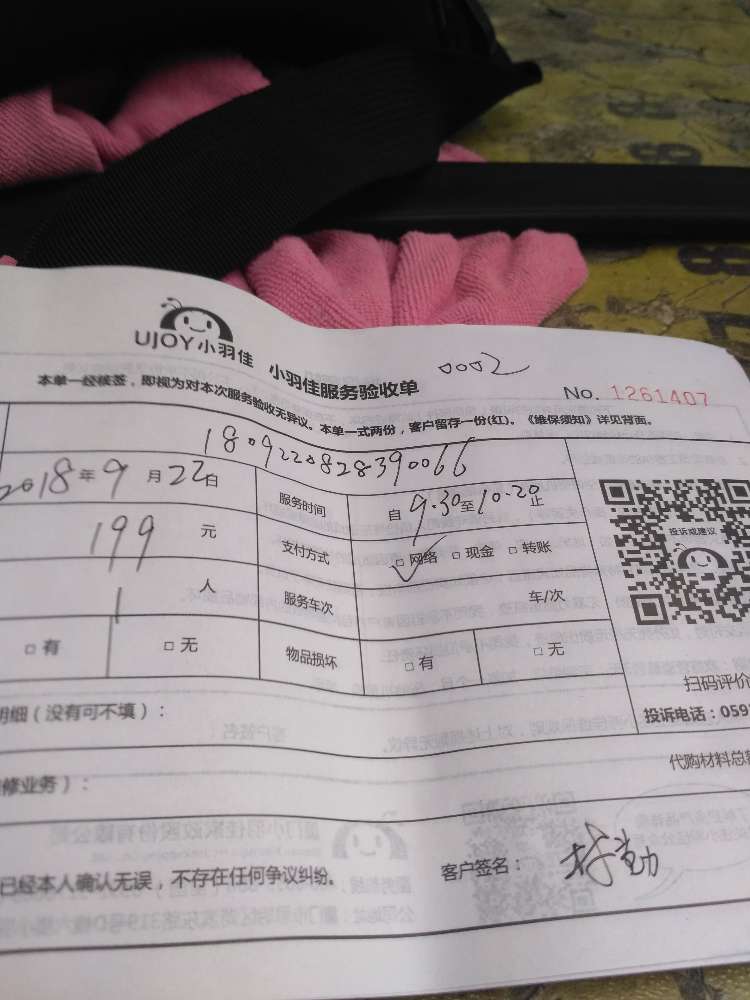 UJOY小羽佳 小羽佳服务验收单 0002
No. 1261407
本单一经核签，即视为对本次服务验收无异议。本单一式两份，客户留存一份(红)。《维保须知》详见背面。
1809220828390066
2018年9月22日 服务时间 自9.30至10.20止
199 元 支付方式 □网络 □现金 □转账
投诉或建议
1 人 服务车次 车/次
□有 □无 物品损坏 □有 □无
扫码评价
明细（没有可不填）：
投诉电话：059
修业务）：
代购材料总
已经本人确认无误，不存在任何争议纠纷。
客户签名：